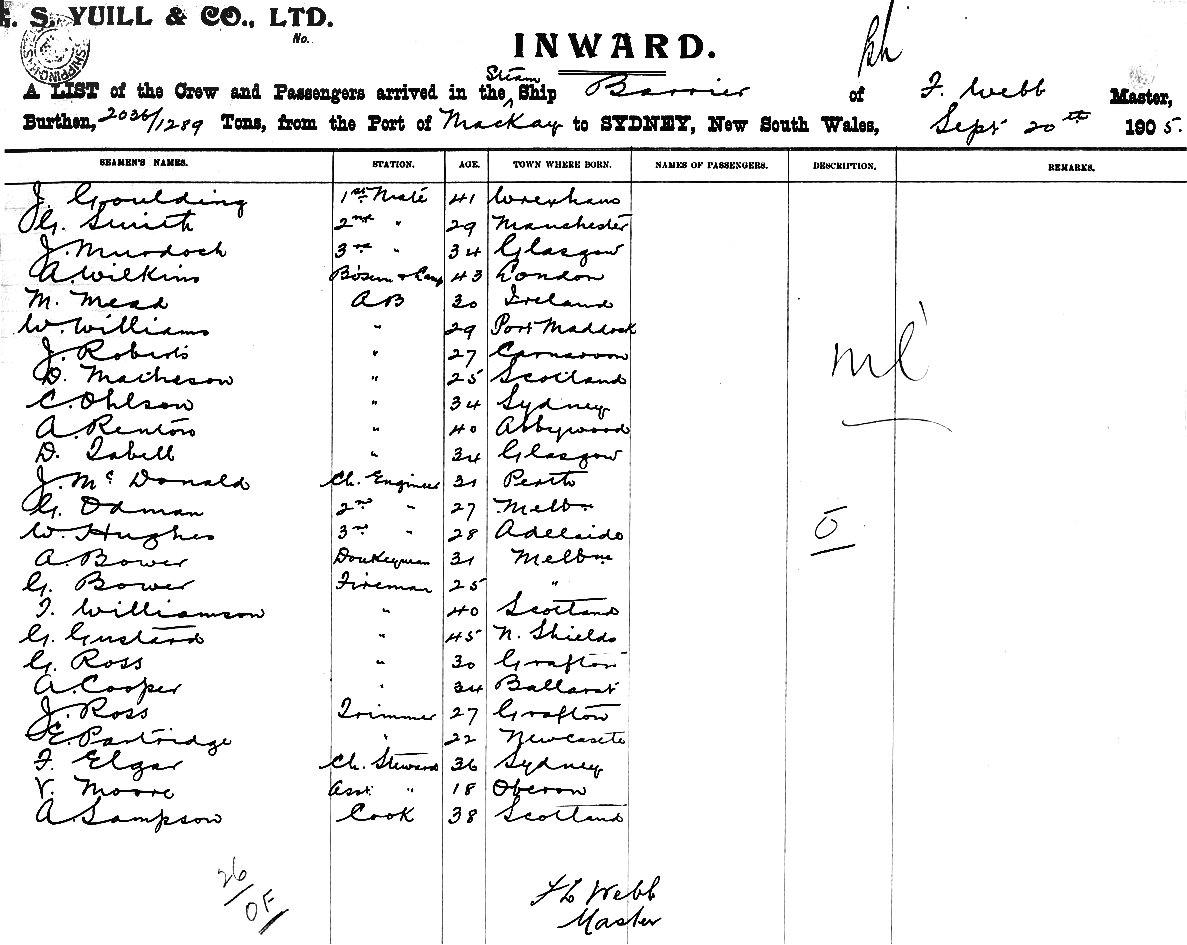 . S. YUILL & CO., LTD.
No.
INWARD.
A LIST of the Crew and Passengers arrived in the Steam Ship Barrier of F. Webb Master,
Burthen, 2036/1289 Tons, from the Port of Mackay to SYDNEY, New South Wales, Sept 20th 1905.
SEAMEN'S NAMES. STATION. AGE. TOWN WHERE BORN. NAMES OF PASSENGERS. DESCRIPTION. REMARKS.
J. Goulding 1st Mate 41 Wrexham
G. Smith 2nd " 29 Manchester
J. Murdoch 3rd " 34 Glasgow
A. Wilkins Bosun & Lamp 43 London
M. Mead AB 30 Ireland
W. Williams " 29 Port Maddock
J. Roberts " 27 Carnarvon
D. Matheson " 25 Scotland
C. Ohlson " 34 Sydney
A. Renton " 40 Abbywood
D. " 34 Glasgow
J. Mc Donald Ch. Engineer 31 Perth
G. Odman 2nd " 27 Melbn
W. Hughes 3rd " 28 Adelaide
A. Bower Donkeyman 31 Melbne
G. Bower Fireman 25 "
T. Williamson " 40 Scotland
G. Gustard " 45 N. Shields
G. Ross " 30 Grafton
A. Cooper " 34 Ballarat
J. Ross Trimmer 27 Grafton
E. Partridge " 22 Newcastle
F. Elgar Ch. Steward 36 Sydney
V. Moore Asst " 18 Oberon
A. Sampson Cook 38 Scotland
26/OF
Webb
Master